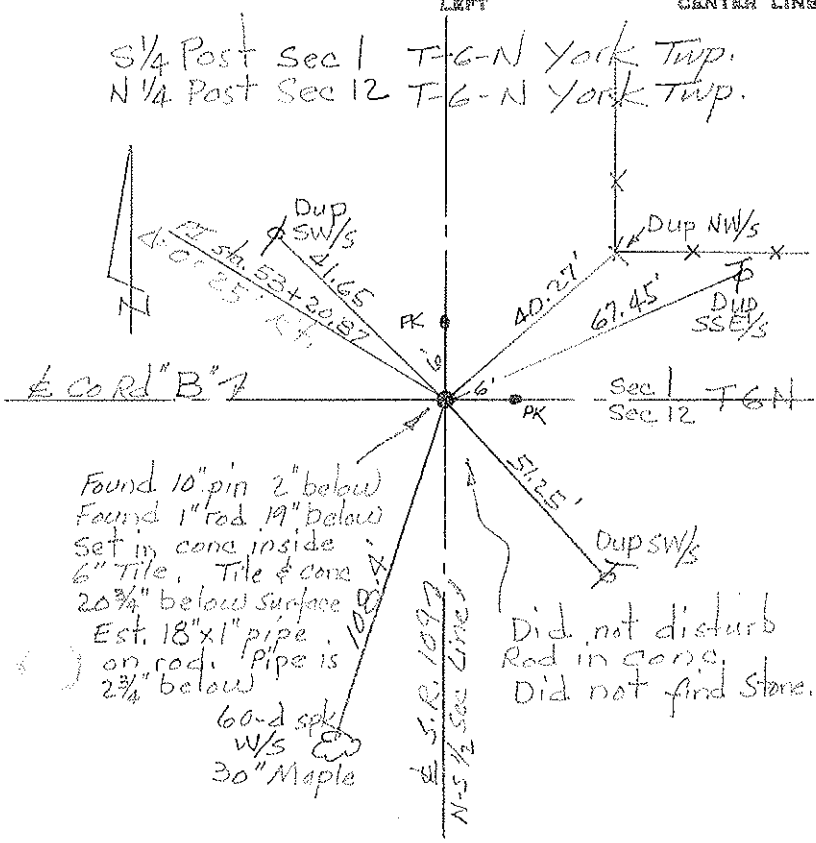 LEFT
CENTER LINE
S 1/4 Post Sec 1 T-6-N York Twp.
N 1/4 Post Sec 12 T-6-N York Twp.
N
Dup
SW/S
41.65
PI sta. 53+20.87
Δ 0° 25' Rt.
PK
6'
40.27'
Dup NW/S
67.45'
Dup
SSE/S
℄ Co Rd "B"
6'
PK
Sec 1 T 6 N
Sec 12
Found 10" pin 2" below
Found 1" rod 19" below
Set in conc inside
6" Tile. Tile & conc
20 3/4" below surface
Est. 18"x1" pipe
on rod. Pipe is
2 3/4" below
108.4'
60-d spk
W/S
30" Maple
℄ S.R. 109
N-S 1/2 Sec Lines
51.25'
Dup SW/S
Did not disturb
Rod in conc.
Did not find Stone.